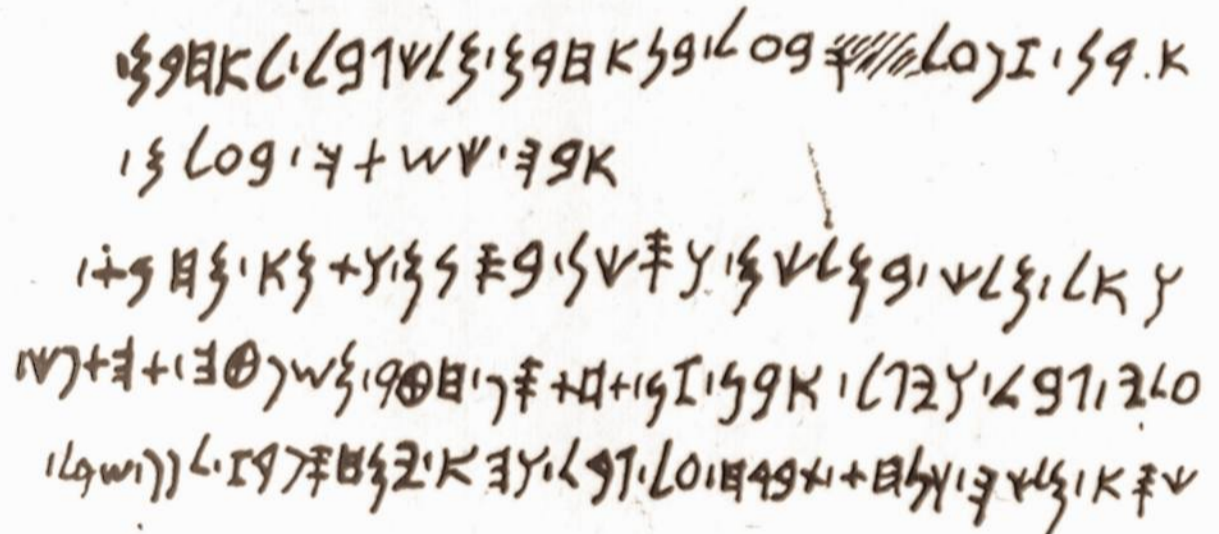 𐤀𐤓𐤍𐤟𐤆𐤐𐤏𐤋 𐤁𐤏𐤋𐤟𐤁𐤍𐤀𐤇𐤓𐤌𐤟𐤌𐤋𐤊𐤂𐤁𐤋𐤟𐤋𐤀𐤇𐤓𐤌𐤟
𐤀𐤁𐤄𐤟𐤊𐤔𐤕𐤄𐤟𐤁𐤏𐤋𐤌𐤟
𐤅𐤀𐤋𐤟𐤌𐤋𐤊𐤟𐤁𐤌𐤋𐤊𐤌𐤟𐤅𐤎𐤊𐤍𐤟𐤁𐤎𐤍𐤌𐤟𐤅𐤕𐤌𐤀𐤟𐤌𐤇𐤍𐤕𐤟
𐤏𐤋𐤉𐤟𐤂𐤁𐤋𐤟𐤅𐤉𐤂𐤋𐤟𐤀𐤓𐤍𐤟𐤆𐤍𐤟𐤕𐤇𐤕𐤎𐤐𐤟𐤇𐤈𐤓𐤟𐤌𐤔𐤐𐤈𐤄𐤟𐤕𐤄𐤕𐤐𐤊𐤟
𐤊𐤎𐤀𐤟𐤌𐤋𐤊𐤄𐤟𐤅𐤍𐤇𐤕𐤟𐤕𐤁𐤓𐤇𐤟𐤏𐤋𐤟𐤂𐤁𐤋𐤟𐤅𐤄𐤀𐤟𐤉𐤌𐤇𐤎𐤐𐤓𐤆𐤟𐤋𐤐𐤐𐤟𐤔𐤁𐤋𐤟